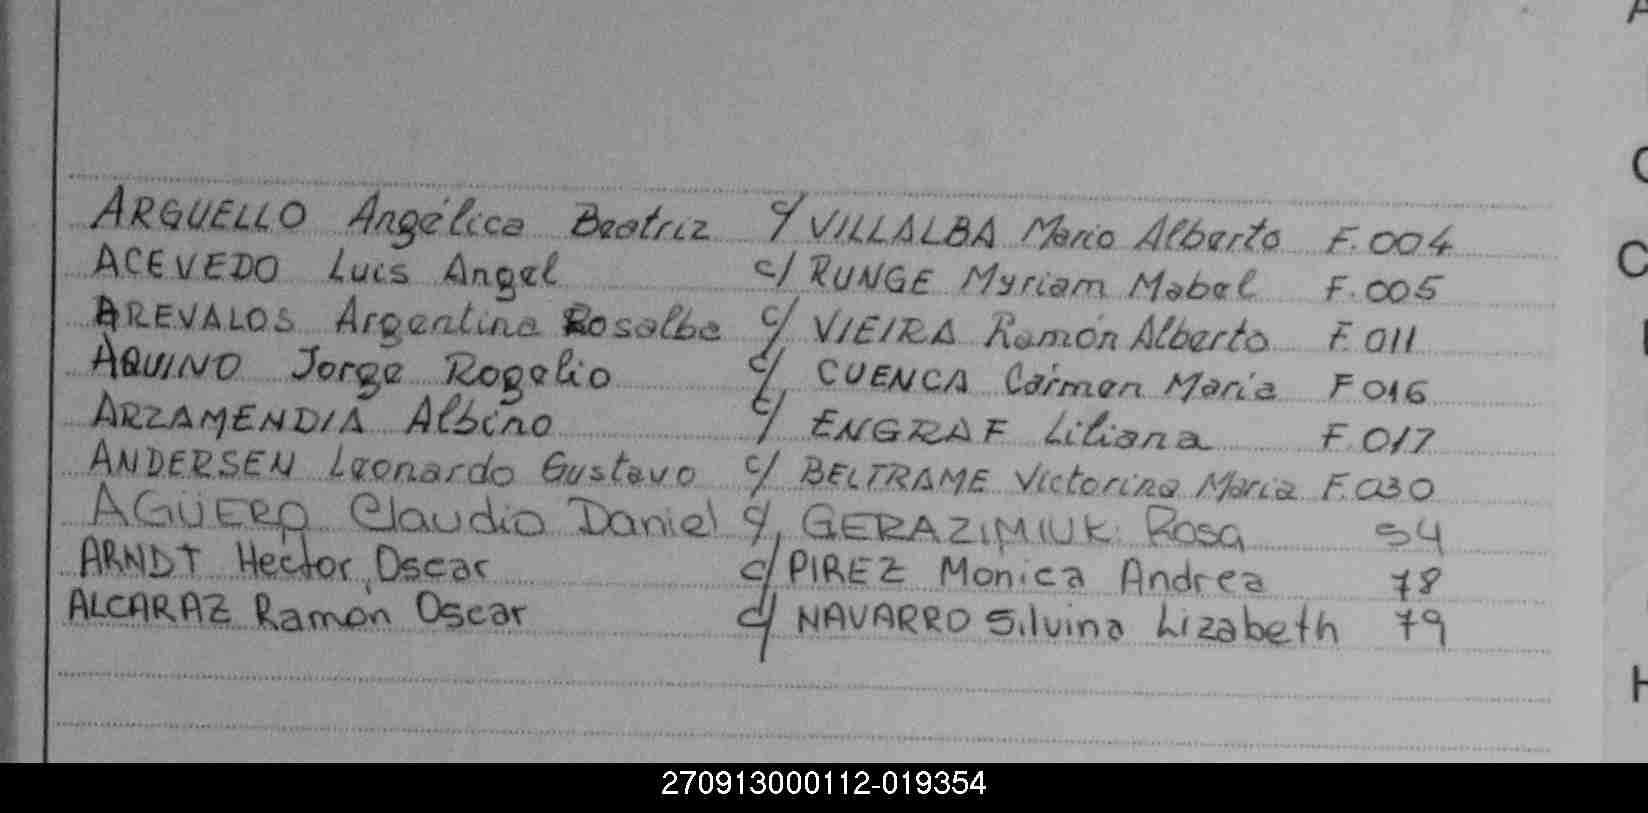 ARGUELLO Angélica Beatriz c/ VILLALBA Mario Alberto F. 004
ACEVEDO Luis Angel c/ RUNGE Myriam Mabel F. 005
AREVALOS Argentina Rosalba c/ VIEIRA Ramón Alberto F. 011
AQUINO Jorge Rogelio c/ CUENCA Carmen María F 016
ARZAMENDIA Albino c/ ENGRAF Liliana F. 017
ANDERSEN Leonardo Gustavo c/ BELTRAME Victorina María F. 030
AGÜERO Claudio Daniel c/ GERAZIMIUK Rosa 54
ARNDT Hector Oscar c/ PIREZ Monica Andrea 78
ALCARAZ Ramón Oscar c/ NAVARRO Silvina Lizabeth 79
270913000112-019354